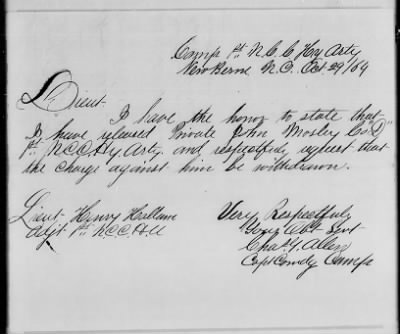 Camp 1st N.C.C. Hvy Arty
New Berne N.C. Oct 29/64
Lieut
I have the honor to state that
I have released Private John Mosley Co "D"
1st N.C.C. Hy Arty. and respectfully request that
the charge against him be withdrawn.
Very Respectfully
Your Obt Servt
Chas. F. Allen
Capt Comdg Camp
Lieut Henry
Adjt 1st N.C.C.H.A